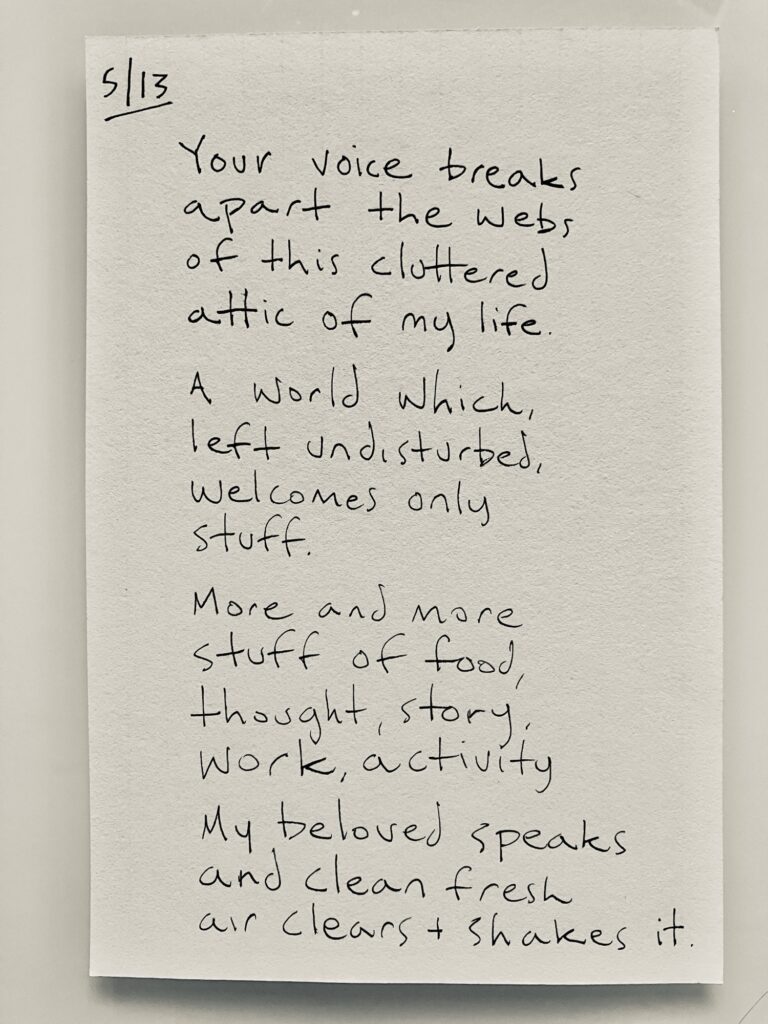 5/13
Your voice breaks
apart the webs
of this cluttered
attic of my life.
A world which,
left undisturbed,
welcomes only
stuff.
More and more
stuff of food,
thought, story,
work, activity
My beloved speaks
and clean fresh
air clears + shakes it.